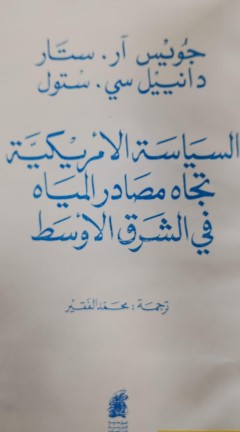 جويس آر. ستار
دانييل سي. ستول
السياسة الأمريكية
تجاه مصادر المياه
في الشرق الأوسط
ترجمة: محمد الفقير